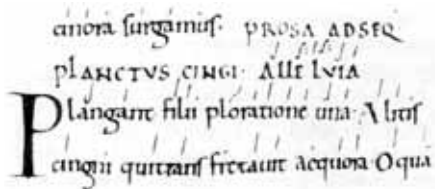 cinora surgamus. PROSA AD SEQ
PLANCTUS CIGNI. ALLELUIA
Plangant filii ploratione una. Alitis
cingni qui trans fretavit aequora. O quā